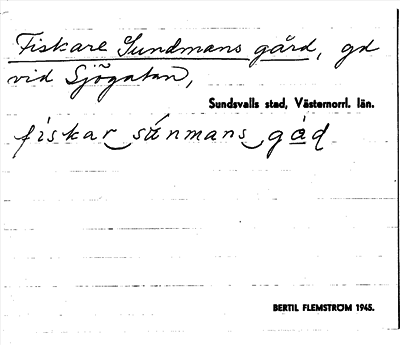 Fiskare Sundmans gård, gd
vid Sjögatan,
Sundsvalls stad, Västernorrl. län.
fiskar‿sánmans‿gàd
BERTIL FLEMSTRÖM 1945.